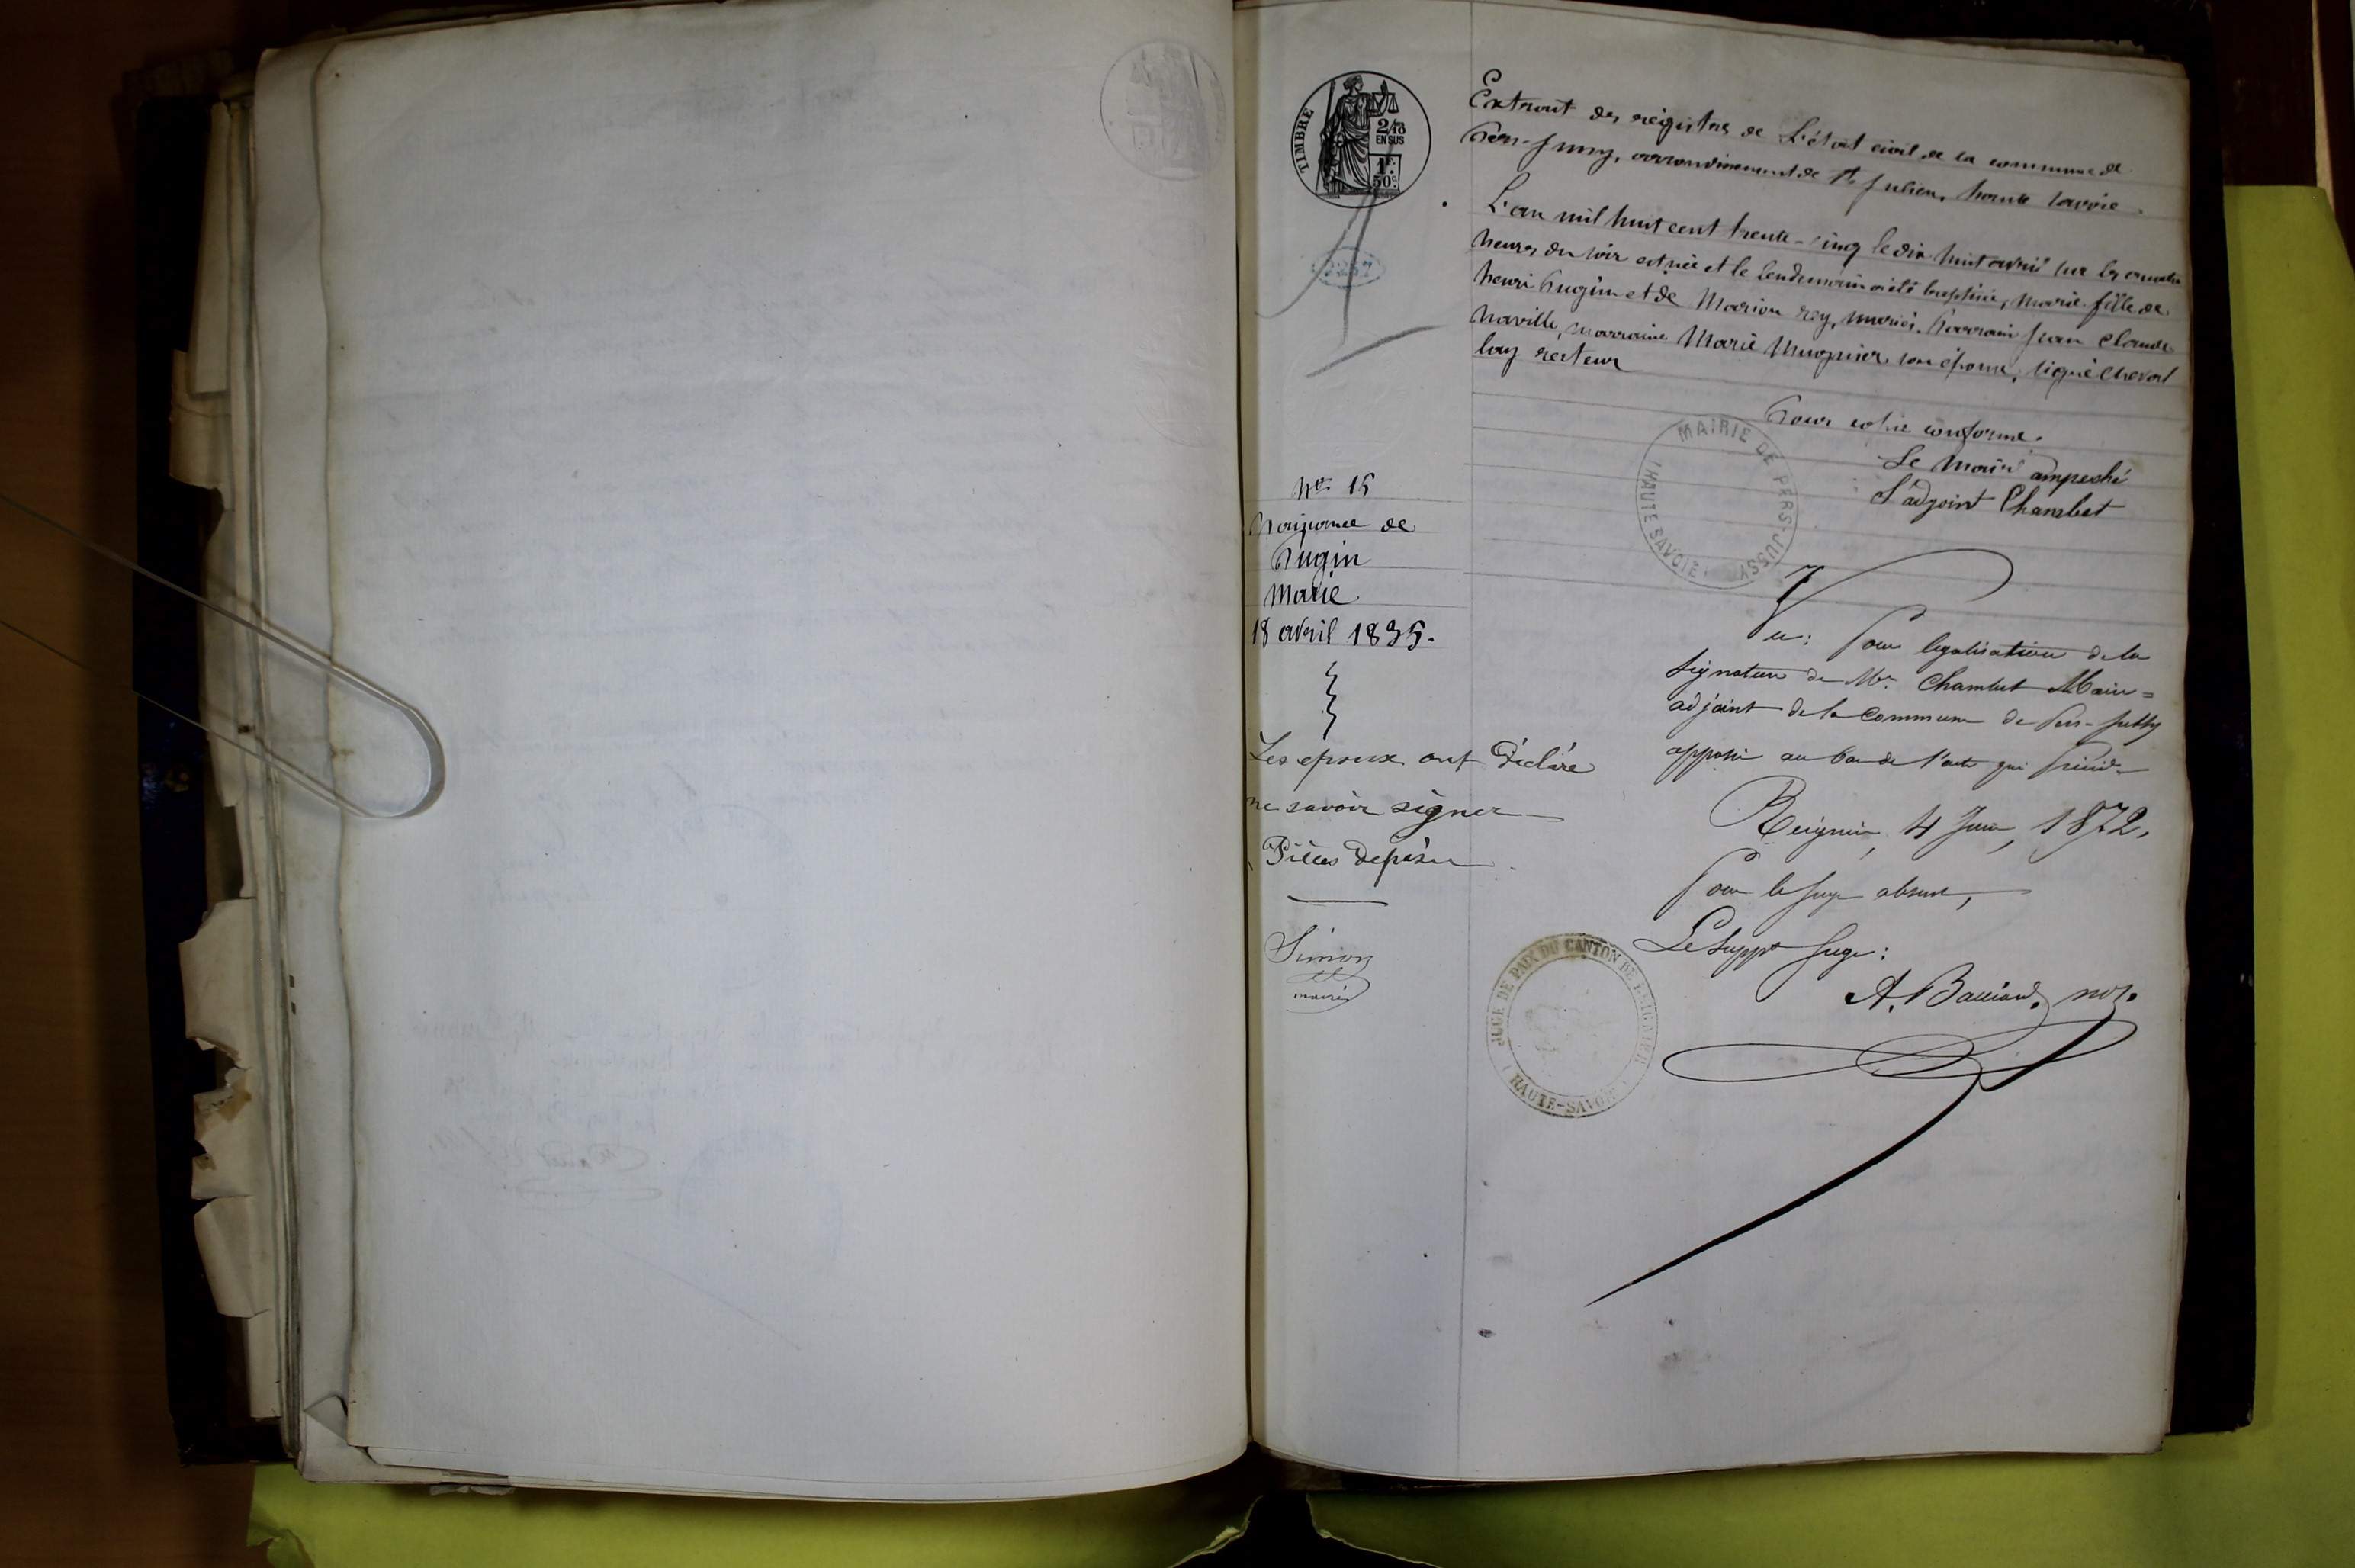 TIMBRE
2/10
EN SUS
1F.
50c.
2257
Extrait des régistres de L'état civil de la commune de
Pers-Jussy, arrondissement de St Julien, haute savoie.
L'an mil huit cent trente-cinq le dix huit avril sur les quatre
heures du soir est née et le lendemain a été baptisée, Marie fille de
henri Pugin et de Marion rey, mariés. Parrain jean Claude
naville, marraine Marie Mugnier son épouse, signé Cheval
lay récteur
Pour copie conforme.
Le Maire ampeshé
L'adjoint Chambet
MAIRIE DE PERS-JUSSY
(HAUTE SAVOIE)
No 15
Naissance de
Pugin
Marie
18 avril 1835.
Les epoux ont déclaré
ne savoir signer
Pièces déposée
Simon
maire
Vu: Pour légalisation de la
signature de Mr. Chambet Maire=
adjoint de la Commune de Pers-Jussy
apposée au bas de l'acte qui précède
Reignier, 4 Juin, 1872.
Pour le Juge absent,
Le Suppt Juge:
A. Bacciard, not.
JUGE DE PAIX DU CANTON DE REIGNIER
(HAUTE-SAVOIE)